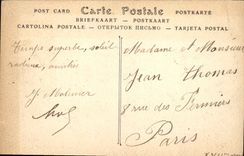 POST CARD Carte Postale POSTKARTE
BRIEFKAART — POSTKARTE
CARTOLINA POSTALE — ОТКРЫТОЕ ПИСЬМО — TARJETA POSTAL
Temps superbe, soleil
radieux,
Madame et Monsieur
Jean Thomas
8 rue des Fermiers
Paris